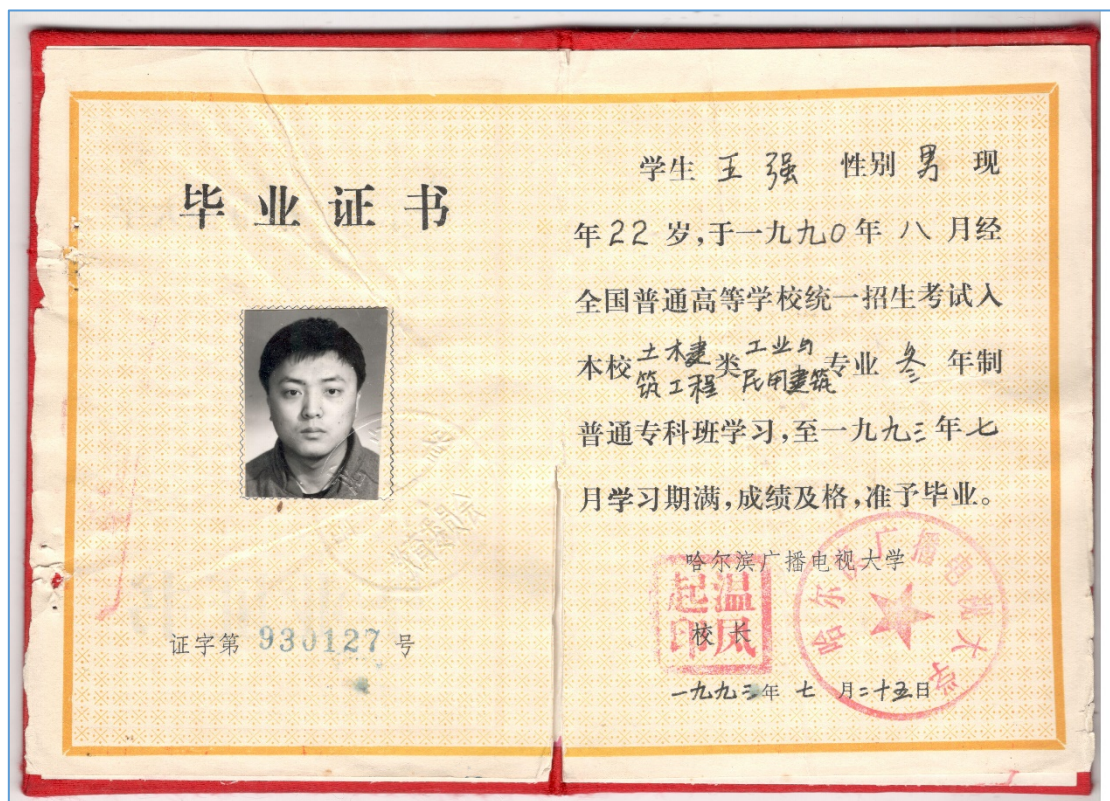 毕业证书
证字第 930127 号
学生 王强 性别 男 现
年22岁,于一九九0年八月经
全国普通高等学校统一招生考试入
本校土木建筑工程类工业与民用建筑专业 叁 年制
普通专科班学习,至一九九三年七
月学习期满,成绩及格,准予毕业。
哈尔滨广播电视大学
校长
温凤起印
一九九三年 七 月二十五日
哈尔滨广播电视大学